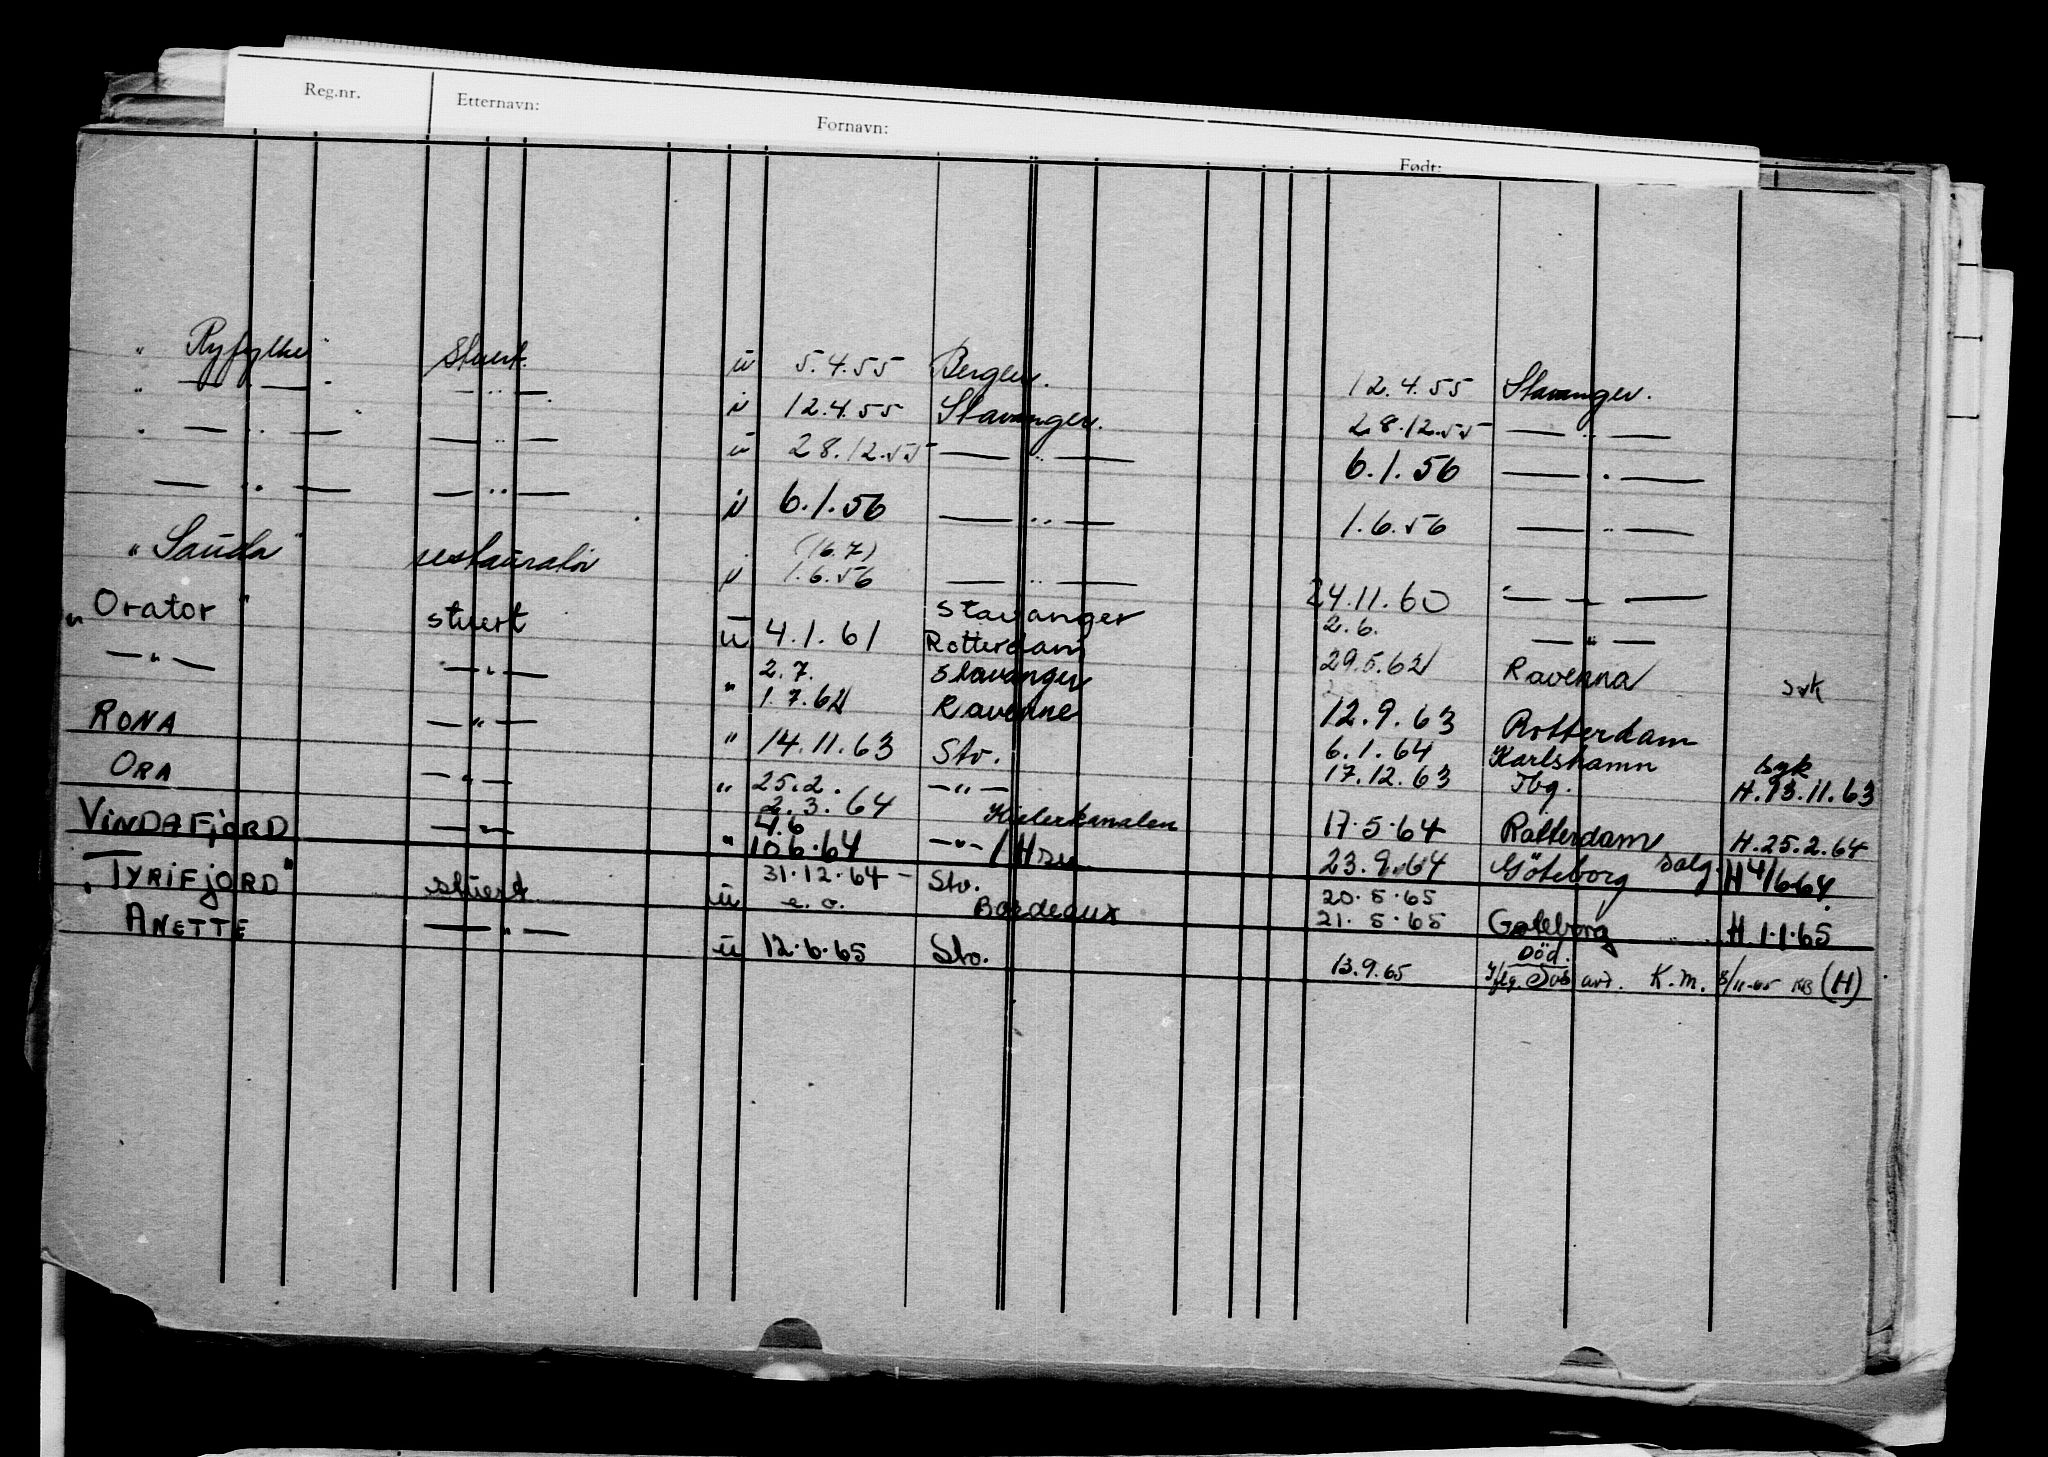 Reg.nr. Etternavn: Fornavn: Født:
" Ryfylke " Stuert. u 5.4.55 Bergen. 12.4.55 Stavanger.
" — " — " — " — u 12.4.55 Stavanger. 28.12.55 — " —
" — " — — " — u 28.12.55 — " — 6.1.56 — " —
— " — — " — u 6.1.56 — " — 1.6.56 — " —
" Sauda " restauratør u (16.7) 1.6.56 — " — 24.11.60 — " —
" Orator " stuert u 4.1.61 Stavanger Rotterdam 2.6. — " —
— " — — " — " 2.7. 1.7.62 Stavanger Ravenne 29.5.62 Ravenna syk
RONA — " — " 14.11.63 Stv. 12.9.63 Rotterdam
6.1.64 Karlshamn syk
ORA — " — " 25.2. 2.3.64 — " — 17.12.63 Tbg. H.13.11.63
VINDAFJORD — " — " 4.6 10.6.64 Kielerkanalen — " — 17.5.64 Rotterdam H.25.2.64
23.9.64 Göteborg salg H 4/6 64
" TYRIFJORD " stuert u 31.12.64 — e.o. Stv. Bordeaux 20.5.65
21.5.65 Goteborg H.1.1.65
ANETTE — " — u 12.6.65 Stv. 13.9.65 Död.
Iflg. avd. K.M. 8/11-65 (H)